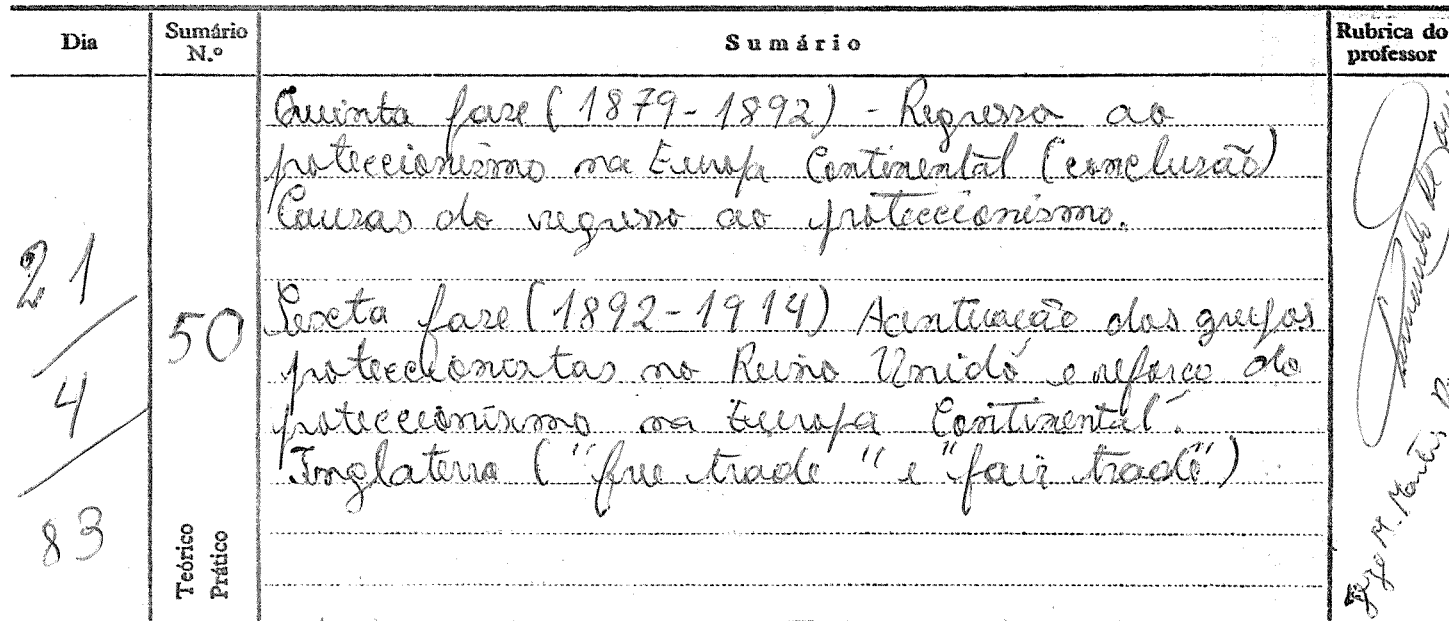 Dia
Sumário N.º
Sumário
Rubrica do professor
21/4/83
50
Teórico
Prático
Quinta fase (1879-1892) - Regresso ao
proteccionismo na Europa Continental (conclusão)
Causas do regresso ao proteccionismo.
Sexta fase (1892-1914) Acentuação dos grupos
proteccionistas no Reino Unido e reforço do
proteccionismo na Europa Continental.
Inglaterra ("free trade" e "fair trade")